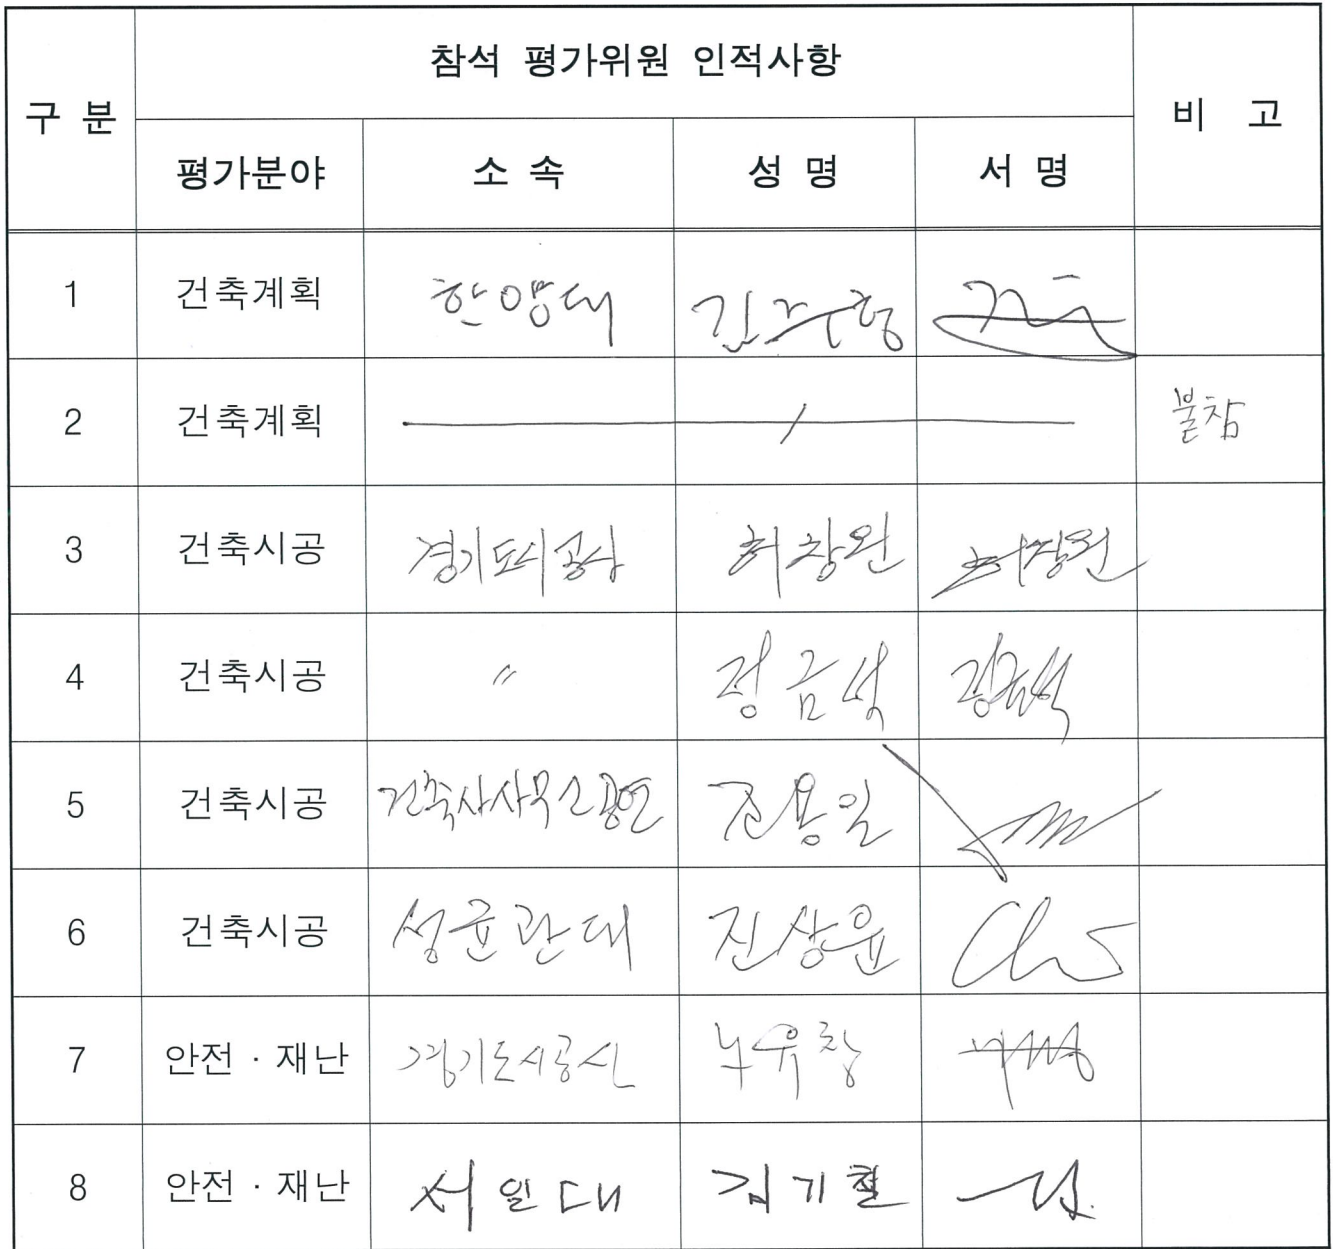 참석 평가위원 인적사항
구 분 비 고
평가분야 소 속 성 명 서 명
1 건축계획 한양대 김주형
2 건축계획 불참
3 건축시공 경기도시공사 허창완 허창완
4 건축시공 〃 정금석 정금석
5 건축시공 건축사사무소공연 조용일
6 건축시공 성균관대 진상윤
7 안전 · 재난 경기도시공사 노유창
8 안전 · 재난 서일대 김기철